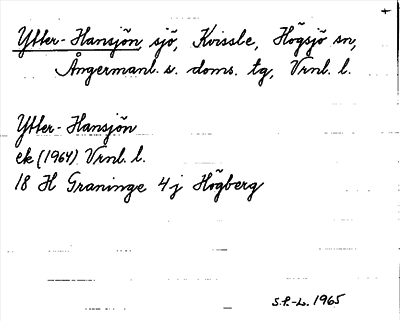 Ytter-Hansjön, sjö, Kvissle, Högsjö sn,
Ångermanl. s. doms. tg, Vrnl. l.
Ytter-Hansjön
ek (1964) Vrnl. l.
18 H Graninge 4j Högberg
S.F.-L. 1965